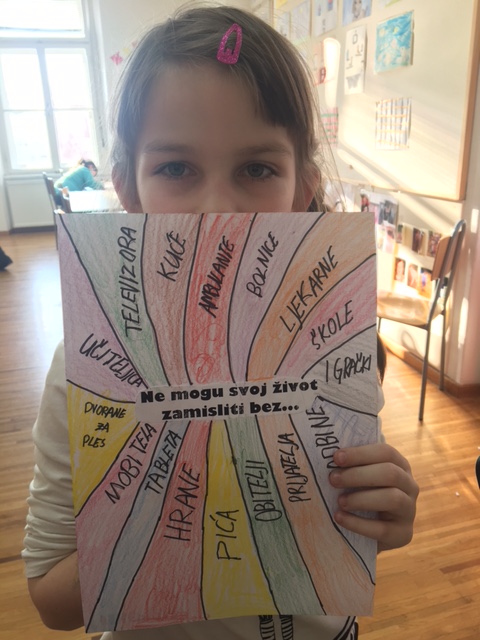 TELEVIZORA
KUĆE
AMBULANTE
BOLNICE
LJEKARNE
ŠKOLE
IGRAČKI
UČITELJICA
Ne mogu svoj život
zamisliti bez...
DVORANE
ZA
PLES
MOBITELA
TABLETA
HRANE
PIĆA
OBITELJI
PRIJATELJA